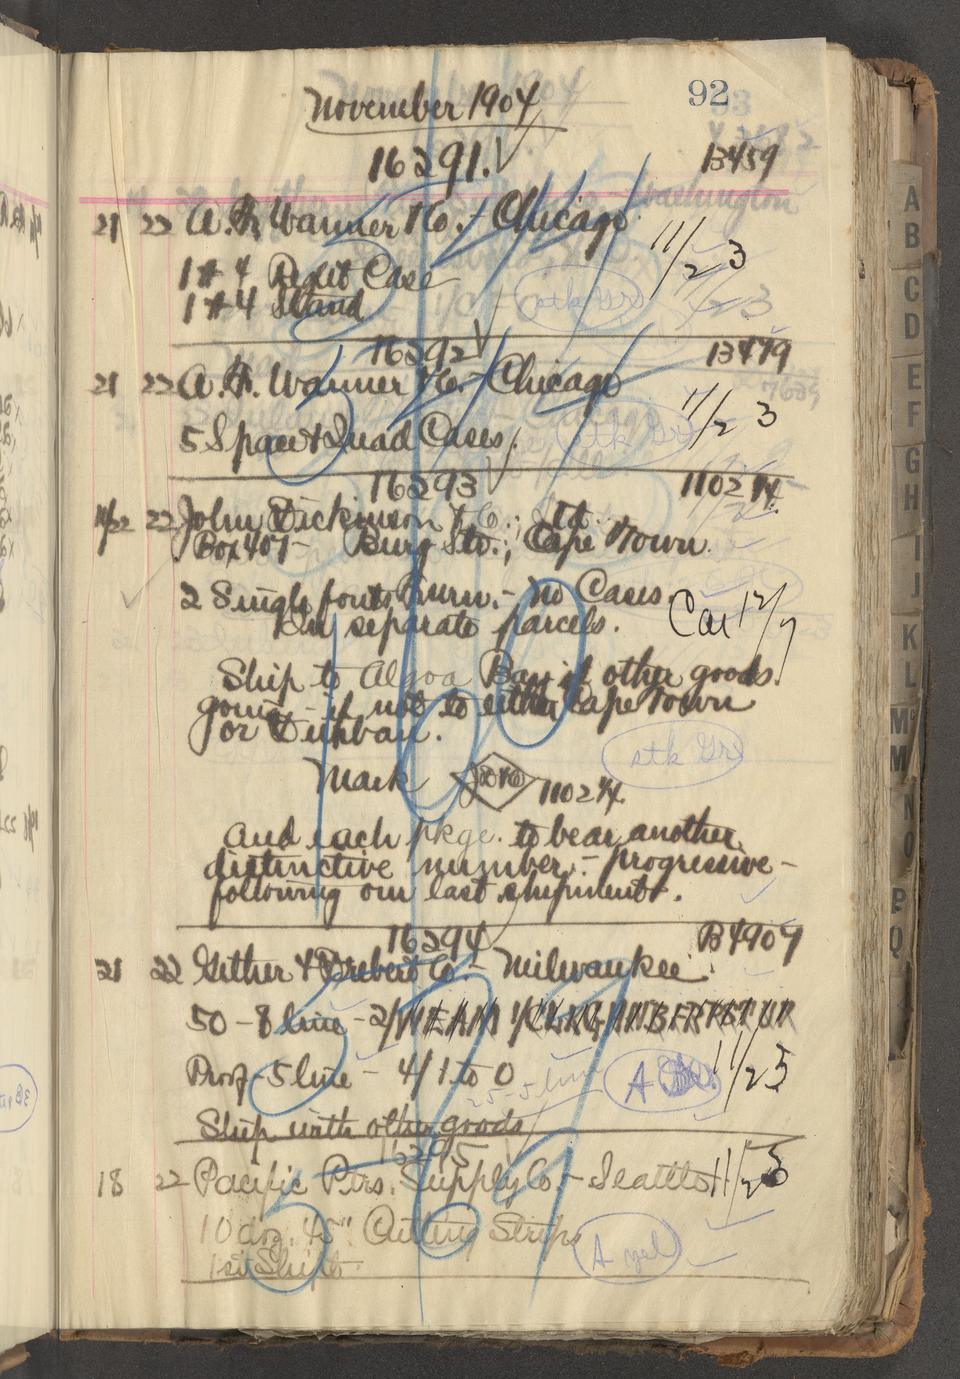 92
November 1904
16291. 13459
21 22 A. F. Wanner & Co. - Chicago
11/23
1 #4 Case
1 #4 Stand
stk Gr
16292 13479
21 22 A. F. Wanner & Co. - Chicago
11/23
5 Space & Quad Cases.
16293 110274.
11/22 22 John Dickinson & Co., Ltd.
Box 407 - Burg Str., Cape Town.
2 Single fonts, Burn. - No Cases.
In separate parcels. Cai 12/7
Ship to Algoa Bay if other goods
going - if not to either Cape Town
or Durban.
stk Gr
Mark 110274.
and each pkge. to bear another
distinctive number - progressive -
following our last shipment.
16294 B4907
21 22 Gether & Drebert Co. - Milwaukee.
50 - 8 line - 2/
Prog - 5 line - 4/1 to 0
25-5 line
11/23
Ship with other goods
16295
18 22 Pacific Ptrs. Supply Co - Seattle 11/23
10 doz. 45" Cutting Strips
A yel
1st Ship't.
A
B
C
D
E
F
G
H
I
J
K
L
M
M
N
O
P
Q